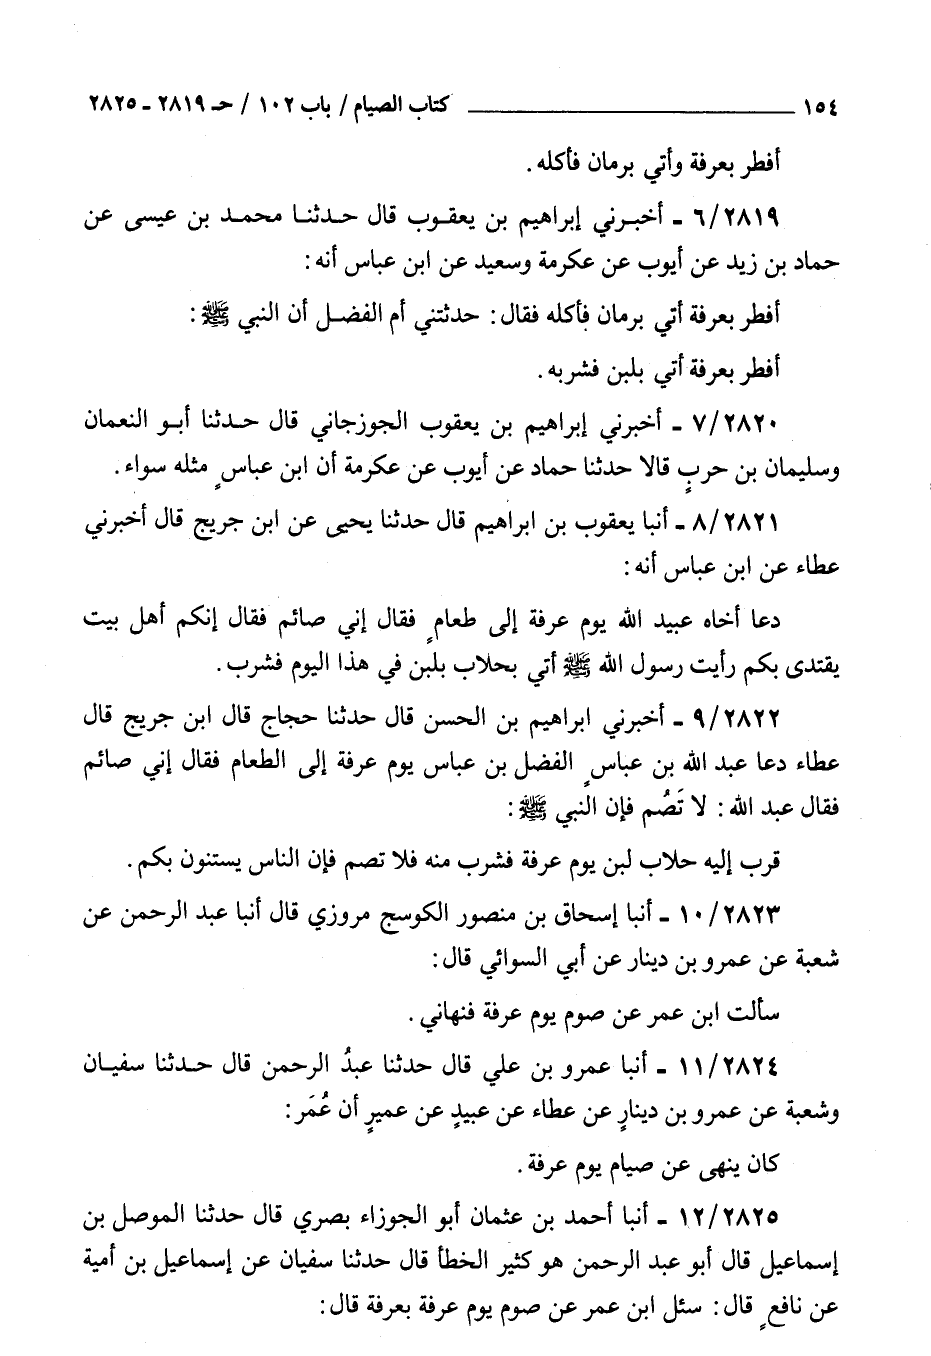 ١٥٤ ــــــــــــــــــــ كتاب الصيام / باب ١٠٢ / حـ ٢٨١٩ ـ ٢٨٢٥
أفطر بعرفة وأتي برمان فأكله.
٦/٢٨١٩ ـ أخبرني إبراهيم بن يعقوب قال حدثنا محمد بن عيسى عن
حماد بن زيد عن أيوب عن عكرمة وسعيد عن ابن عباس أنه:
أفطر بعرفة أتي برمان فأكله فقال: حدثتني أم الفضل أن النبي ﷺ:
أفطر بعرفة أتي بلبن فشربه.
٧/٢٨٢٠ ـ أخبرني إبراهيم بن يعقوب الجوزجاني قال حدثنا أبو النعمان
وسليمان بن حربٍ قالا حدثنا حماد عن أيوب عن عكرمة أن ابن عباسٍ مثله سواء.
٨/٢٨٢١ ـ أنبا يعقوب بن ابراهيم قال حدثنا يحيى عن ابن جريج قال أخبرني
عطاء عن ابن عباس أنه:
دعا أخاه عبيد الله يوم عرفة إلى طعامٍ فقال إني صائم فقال إنكم أهل بيت
يقتدى بكم رأيت رسول الله ﷺ أتي بحلاب بلبن في هذا اليوم فشرب.
٩/٢٨٢٢ ـ أخبرني ابراهيم بن الحسن قال حدثنا حجاج قال ابن جريج قال
عطاء دعا عبد الله بن عباسٍ الفضل بن عباس يوم عرفة إلى الطعام فقال إني صائم
فقال عبد الله: لا تَصُم فإن النبي ﷺ:
قرب إليه حلاب لبن يوم عرفة فشرب منه فلا تصم فإن الناس يستنون بكم.
١٠/٢٨٢٣ ـ أنبا إسحاق بن منصور الكوسج مروزي قال أنبا عبد الرحمن عن
شعبة عن عمرو بن دينار عن أبي السوائي قال:
سألت ابن عمر عن صوم يوم عرفة فنهاني.
١١/٢٨٢٤ ـ أنبا عمرو بن علي قال حدثنا عبدُ الرحمن قال حدثنا سفيان
وشعبة عن عمرو بن دينارٍ عن عطاء عن عبيدٍ عن عميرٍ أن عُمَر:
كان ينهى عن صيام يوم عرفة.
١٢/٢٨٢٥ ـ أنبا أحمد بن عثمان أبو الجوزاء بصري قال حدثنا الموصل بن
إسماعيل قال أبو عبد الرحمن هو كثير الخطأ قال حدثنا سفيان عن إسماعيل بن أمية
عن نافعٍ قال: سئل ابن عمر عن صوم يوم عرفة بعرفة قال: